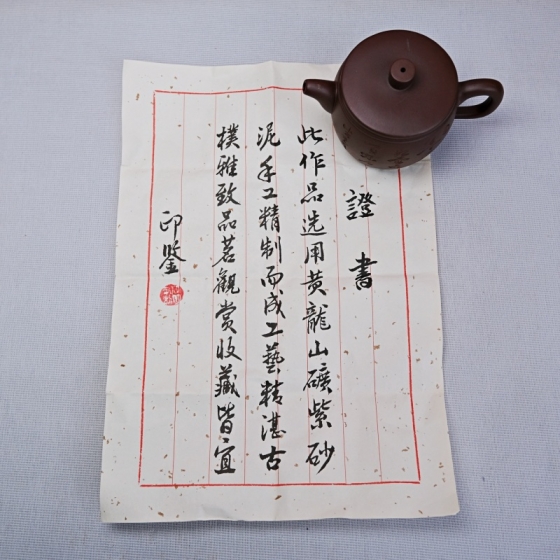 證書
此作品选用黄龍山礦紫砂
泥手工精制而成工藝精湛古
樸雅致品茗觀赏收藏皆宜
印鑒